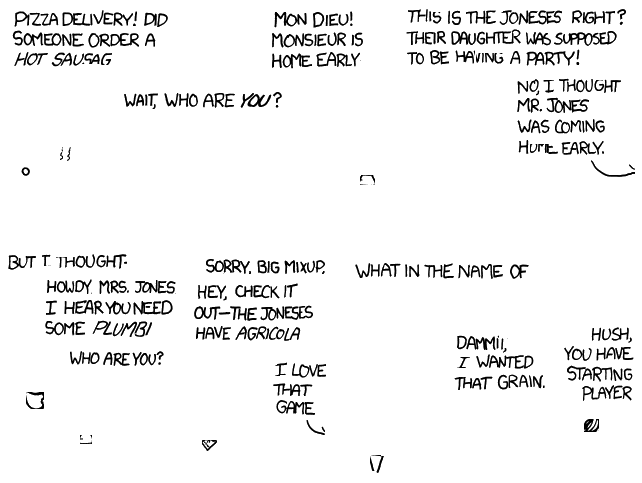 PIZZA DELIVERY! DID
SOMEONE ORDER A
HOT SAUSAG
WAIT, WHO ARE YOU?
MON DIEU!
MONSIEUR IS
HOME EARLY
THIS IS THE JONESES RIGHT?
THEIR DAUGHTER WAS SUPPOSED
TO BE HAVING A PARTY!
NO, I THOUGHT
MR. JONES
WAS COMING
HOME EARLY.
BUT I THOUGHT-
HOWDY MRS. JONES
I HEAR YOU NEED
SOME PLUMBI
WHO ARE YOU?
SORRY, BIG MIXUP.
HEY, CHECK IT
OUT—THE JONESES
HAVE AGRICOLA
I LOVE
THAT
GAME
WHAT IN THE NAME OF
DAMMIT,
I WANTED
THAT GRAIN.
HUSH,
YOU HAVE
STARTING
PLAYER